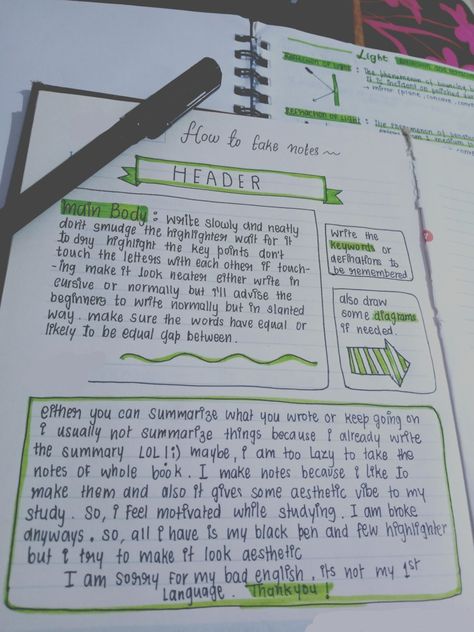 Light
Reflection of light : The phenomenon of bouncing
it is incident on polished
→ mirror (plane, concave, conv
Refraction of Light : the phenomenon of
How to take notes~
HEADER
main Body : write slowly and neatly
don't smudge the highlighters wait for it
to dry highlight the key points don't
touch the letters with each other if touch-
-ing make it look neater either write in
cursive or normally but i'll advise the
beginners to write normally but in slanted
way. make sure the words have equal or
likely to be equal gap between.
write the
keywords or
definations to
be remembered
also draw
some diagrams
if needed.
either you can summarize what you wrote or keep going on
i usually not summarize things because i already write
the summary LOL!:) maybe, i am too lazy to take the
notes of whole book. I make notes because i like to
make them and also it gives some aesthetic vibe to my
study. so, i feel motivated while studying. I am broke
anyways. so, all i have is my black pen and few highlighter
but i try to make it look aesthetic
I am sorry for my bad english. its not my 1st
Language. Thankyou!